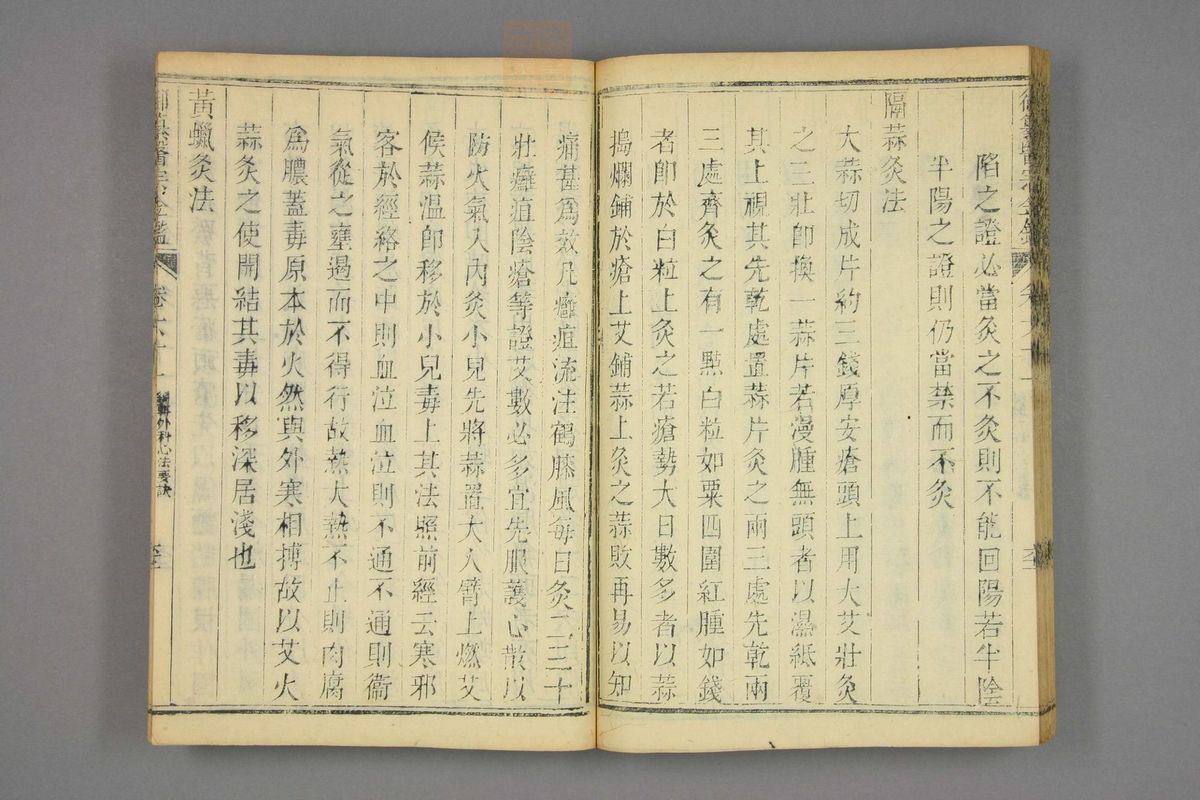 陷之證必當灸之不灸則不能回陽若半陰
半陽之證則仍當禁而不灸
隔蒜灸法
大蒜切成片約三錢厚安瘡頭上用大艾壯灸
之三壯卽換一蒜片若漫腫無頭者以濕紙覆
其上視其先乾處置蒜片灸之兩三處先乾兩
三處齊灸之有一點白粒如粟四圍紅腫如錢
者卽於白粒上灸之若瘡勢大日數多者以蒜
搗爛鋪於瘡上艾鋪蒜上灸之蒜敗再易以知
痛甚爲效凡癰疽流注鶴膝風每日灸二三十
壯癰疽陰瘡等證艾數必多宜先服護心散以
防火氣入內灸小兒先將蒜置大人臂上燃艾
候蒜溫卽移於小兒毒上其法照前經云寒邪
客於經絡之中則血泣血泣則不通不通則衞
氣從之壅遏而不得行故熱大熱不止則肉腐
爲膿蓋毒原本於火然與外寒相搏故以艾火
蒜灸之使開結其毒以移深居淺也
黃蠟灸法
御纂醫宗金鑑 卷六十一 編輯外科心法要訣